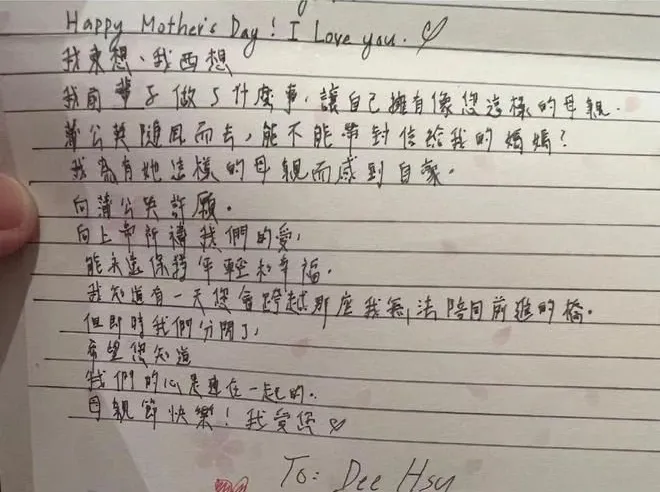 Happy Mother's Day! I Love you. ♡
我東想、我西想
我前輩子做了什麼事,讓自己擁有像您這樣的母親.
蒲公英隨風而去,能不能帶封信給我的媽媽?
我為有她這樣的母親而感到自豪.
向蒲公英許願.
向上帝祈禱我們的愛,
能永遠保持年輕和幸福.
我知道有一天您會跨越那座我無法陪同前進的橋.
但即時我們分開了,
希望您知道
我們的心是連在一起的.
母親節快樂!我愛您♡
To: Dee Hsu